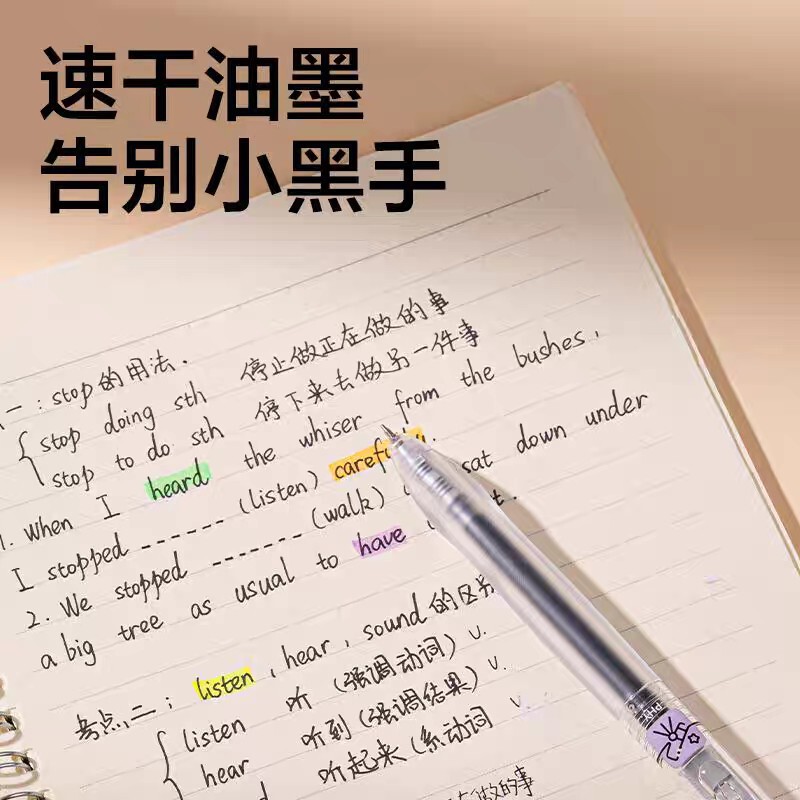 速干油墨
告别小黑手
一：stop的用法.
stop doing sth 停止做正在做的事
stop to do sth 停下来去做另一件事
1. When I heard the whiser from the bushes,
I stopped ------ (listen)
2. We stopped ------- (walk) sat down under
a big tree as usual to have
考点二：listen, hear, sound的区别
listen 听 (强调动词) v.
hear 听到 (强调结果) v.
听起来 (系动词 v.
做的事